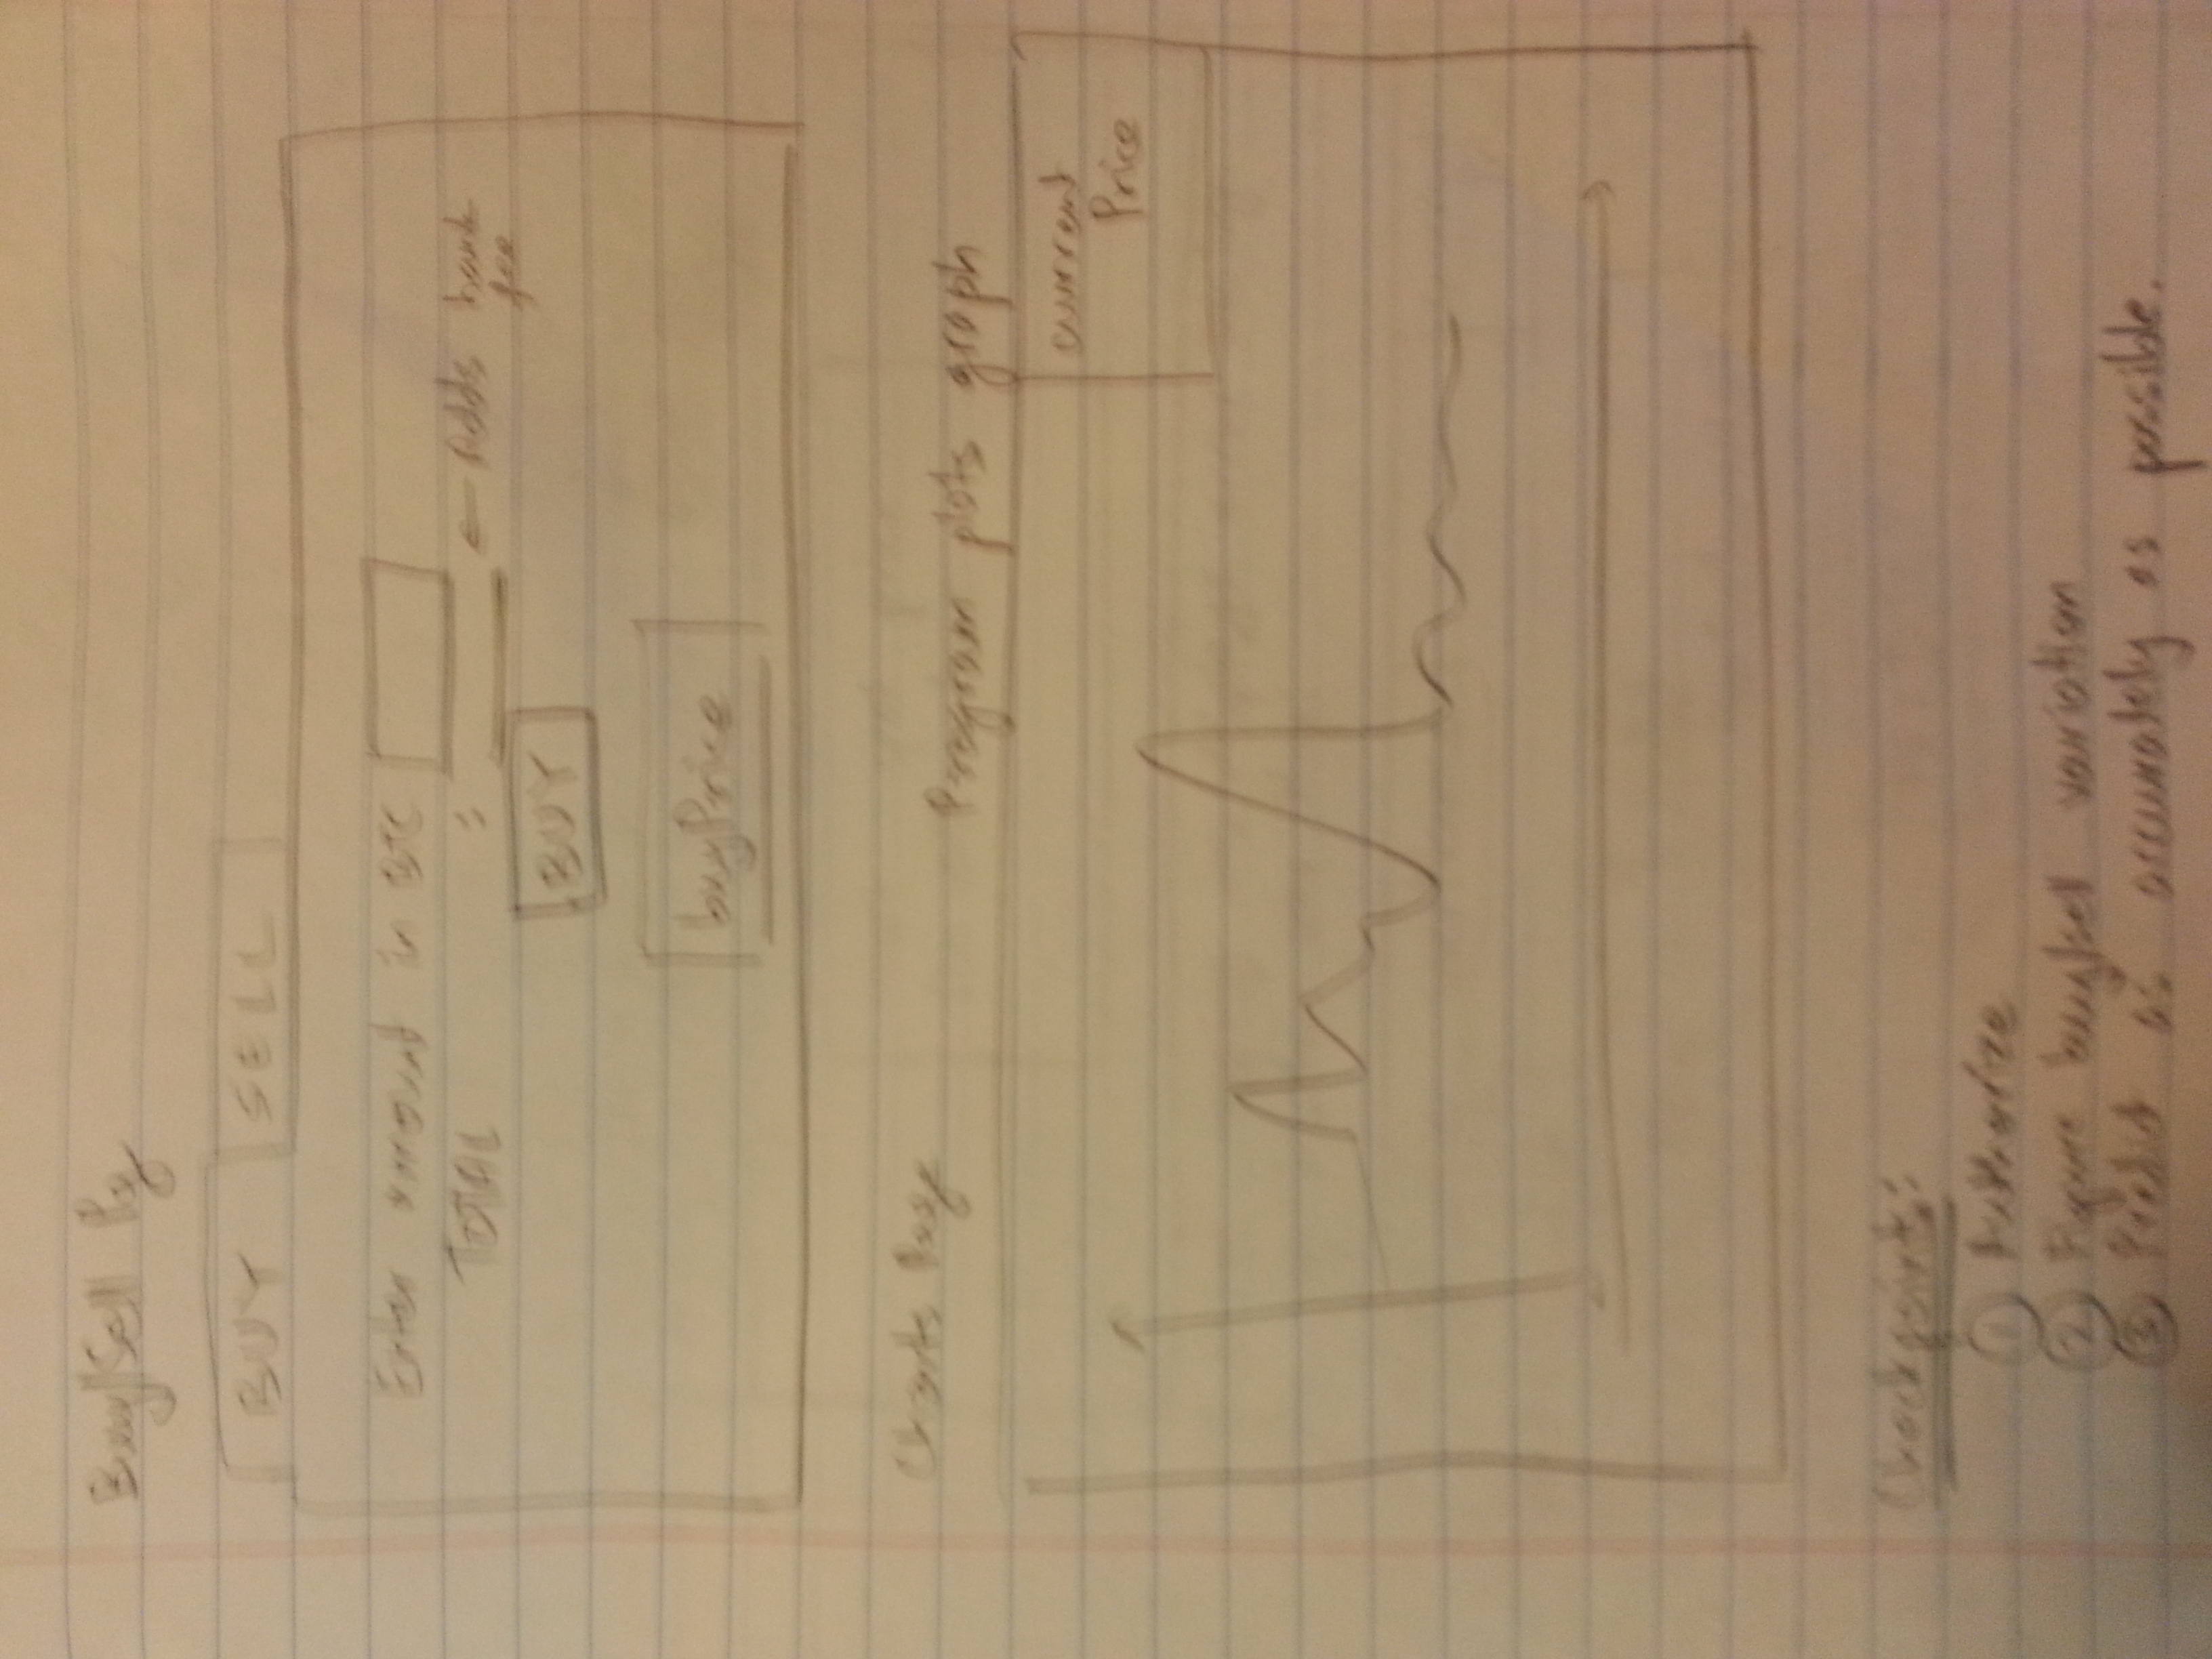 Buy/Sell Pg
BUY SELL
Enter amount in BTC
TOTAL : ← Adds bank
fee
BUY
buyPrice
Charts Page
Program plots graph
current
Price
Checkpoints:
① Authorize
② Figure buy/sell variation
③ Predict as accurately as possible.